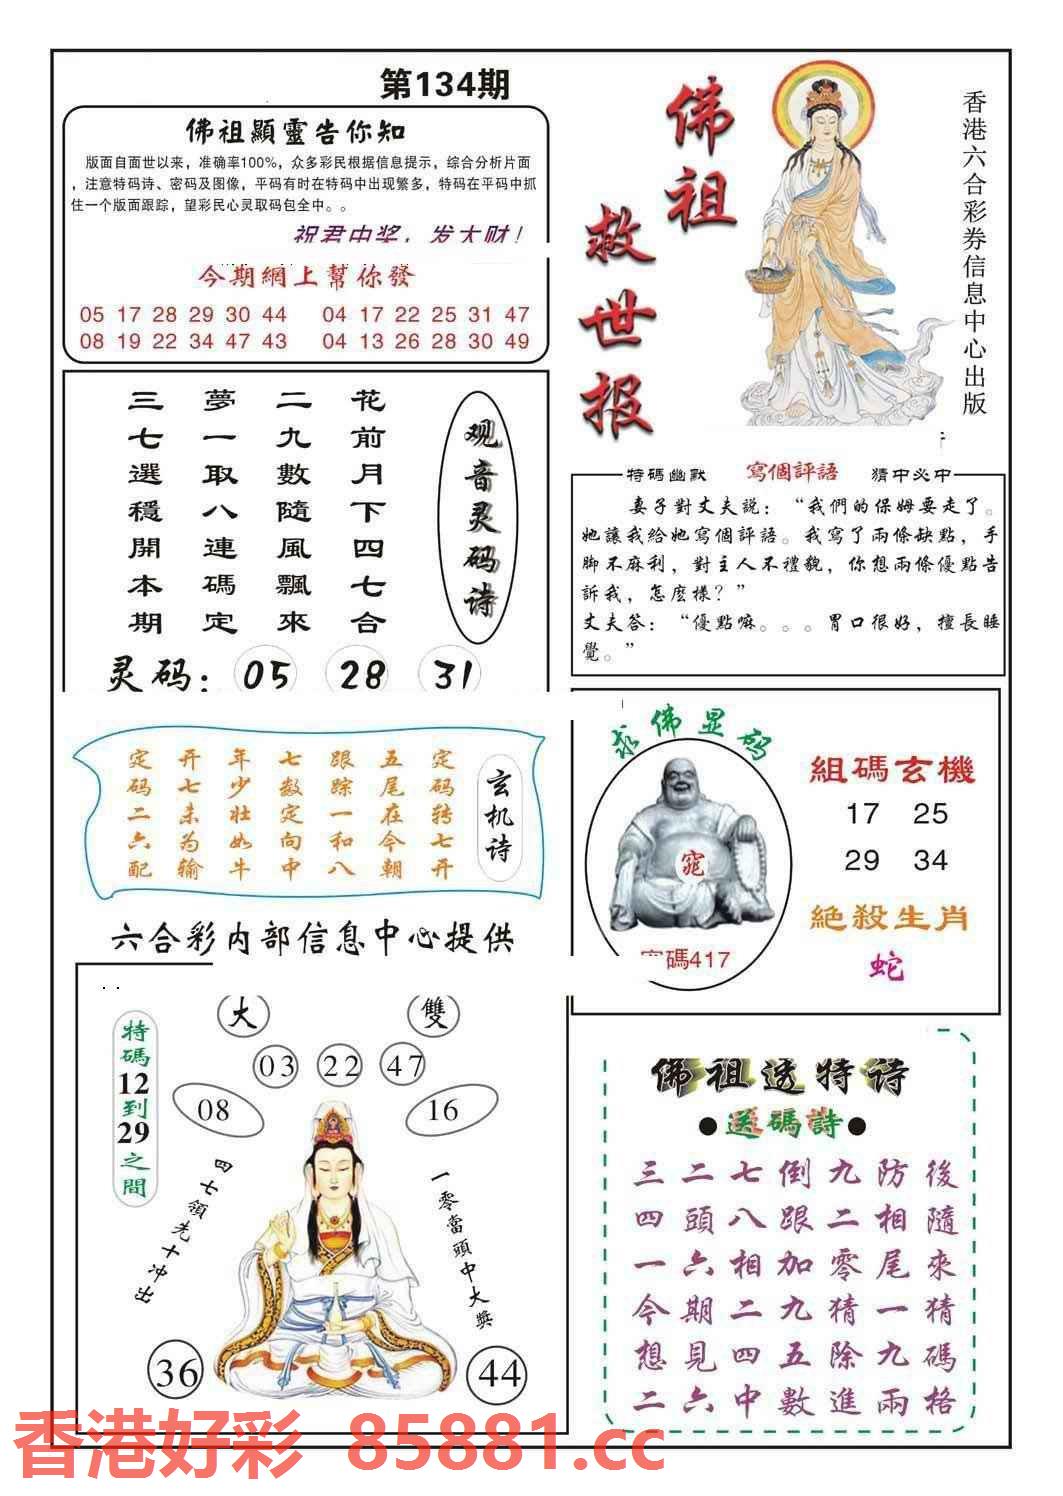 第134期
佛祖顯靈告你知
版面自面世以来，准确率100%，众多彩民根据信息提示，综合分析片面
，注意特码诗、密码及图像，平码有时在特码中出现繁多，特码在平码中抓
住一个版面跟踪，望彩民心灵取码包全中。。
祝君中奖，发大财！
今期網上幫你發
05 17 28 29 30 44 04 17 22 25 31 47
08 19 22 34 47 43 04 13 26 28 30 49
佛祖
救世报
香港六合彩券信息中心出版
观音灵码诗
花前月下四七合
二九數隨風飄來
夢一取八連碼定
三七選穩開本期
灵码：05 28 31
特碼幽默 寫個評語 猜中必中
妻子對丈夫説：“我們的保姆要走了。
她讓我給她寫個評語。我寫了兩條缺點，手
脚不麻利，對主人不禮貌，你想兩條優點告
訴我，怎麽樣？”
丈夫答：“優點嘛。。。胃口很好，擅長睡
覺。”
玄机诗
定码转七开
五尾在今朝
跟踪一和八
七数定向中
年少壮如牛
开七未为输
定码二六配
六合彩内部信息中心提供
求佛显码
窕
碼417
組碼玄機
17 25
29 34
絶殺生肖
蛇
特碼12到29之間
大 雙
03 22 47
08 16
四七領先十冲出
一零當頭中大獎
36 44
佛祖透特诗
●送碼詩●
三二七倒九防後
四頭八跟二相隨
一六相加零尾來
今期二九猜一猜
想見四五除九碼
二六中數進兩格
香港好彩 85881.cc